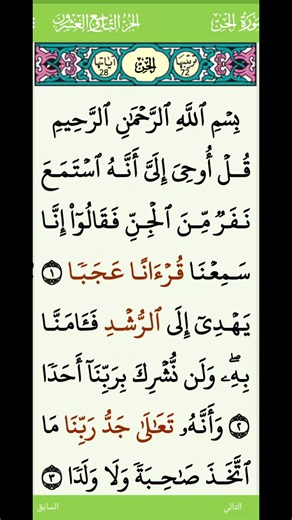 سورة الجن الجزء التاسع والعشرون
ترتيبها 72 الجن آياتها 28
بِسْمِ ٱللَّهِ ٱلرَّحْمَٰنِ ٱلرَّحِيمِ
قُلْ أُوحِيَ إِلَىَّ أَنَّهُ ٱسْتَمَعَ
نَفَرٌ مِّنَ ٱلْجِنِّ فَقَالُوٓا۟ إِنَّا
سَمِعْنَا قُرْءَانًا عَجَبًا ١
يَهْدِىٓ إِلَى ٱلرُّشْدِ فَـَٔامَنَّا
بِهِۦ ۖ وَلَن نُّشْرِكَ بِرَبِّنَآ أَحَدًا
٢ وَأَنَّهُۥ تَعَٰلَىٰ جَدُّ رَبِّنَا مَا
ٱتَّخَذَ صَٰحِبَةً وَلَا وَلَدًا ٣
التالي السابق